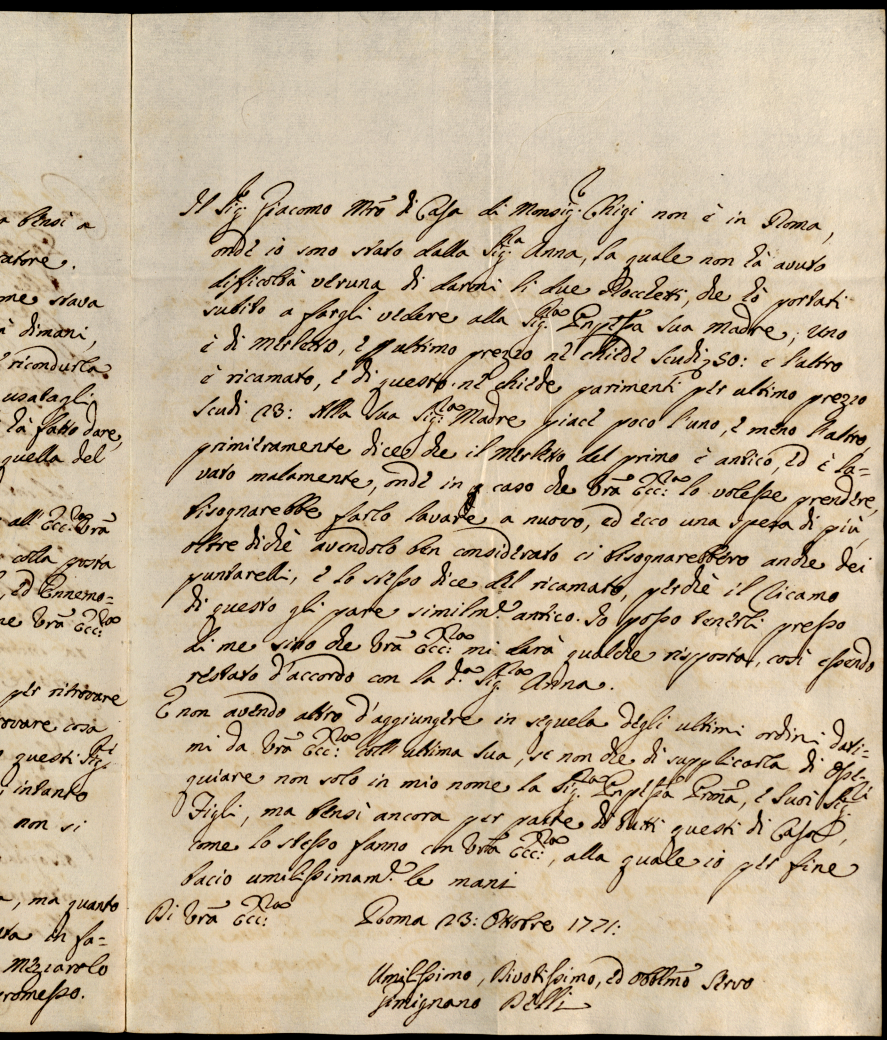 a bensì a
catore.
me stava
à dimani,
ricondurla
usatagli
hà fatto dare,
quella del
all' Ecc:za Vrã
colla posta
, ed Ennemo=
ne Vrã Ecc:za
per ritrovare
rovare cosa
questi Sig:ri
, intanto
non si
, ma quanto
ta in fa=
Mezzarolo
promesso.
Il Sig: Giacomo Mrõ di Casa di Monsig: Chigi non è in Roma,
onde io sono stato dalla Sig:ra Anna, la quale non hà avuto
difficoltà veruna di darmi li due Rocchetti, che hò portati
subito a fargli vedere alla Sig:ra Pnpessa sua Madre; uno
è di Merletto, e p ultimo prezzo ne chiede scudi 50: e l'altro
è ricamato, e di questo ne chiede parimenti per ultimo prezzo
scudi 23: Alla sua Sig:ra Madre piace poco l'uno, e meno l'altro,
primieramente dice che il Merletto del primo è antico, ed è la=
vato malamente, onde in caso che Vrã Ecc:za lo volesse prendere,
bisognarebbe farlo lavare a nuovo, ed ecco una spesa di più,
oltre di che avendolo ben considerato ci bisognarebbero anche dei
puntarelli, e lo stesso dice del ricamato, perchè il ricamo
di questo gli pare similm:e antico. Io posso tenerli presso
di me sino che Vrã Ecc:za mi darà qualche risposta, così essendo
restato d'accordo con la d:a Sig:ra Anna.
E non avendo altro d'aggiungere in seguela degli ultimi ordini dati=
mi da Vrã Ecc:za coll'ultima sua, se non che di supplicarla di osse=
quiare non solo in mio nome la Sig:ra Pnpessa Pronã, e suoi Sig:ri
Figli, ma bensì ancora per parte di tutti questi di Casa,
come lo stesso fanno con Vrã Ecc:za, alla quale io per fine
bacio umilissimam:e le mani
Di Vrã Ecc:za
Roma 23: Ottobre 1771:
Umilissimo, Divotissimo, ed Obblmõ Servo
Gimignano Belli